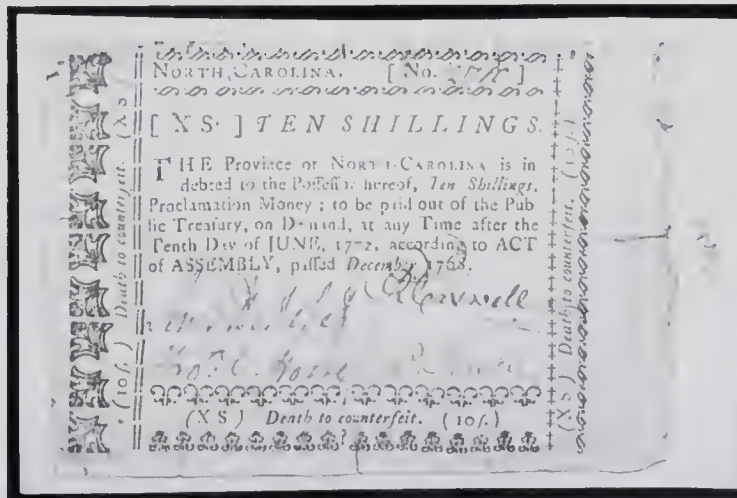 NORTH CAROLINA. [ No. ]
[ X S. ] TEN SHILLINGS.
THE Province of NORTH-CAROLINA is in
debted to the Poſſeſſor hereof, Ten Shillings,
Proclamation Money ; to be paid out of the Pub
lic Treaſury, on Demand, at any Time after the
Tenth Day of JUNE, 1772, according to ACT
of ASSEMBLY, paſſed December 1768.
(X S ) Death to counterfeit. ( 10ſ.)
( 10ſ. ) Death to counterfeit. (X S
(X S ) Death to counterfeit. (10ſ.)